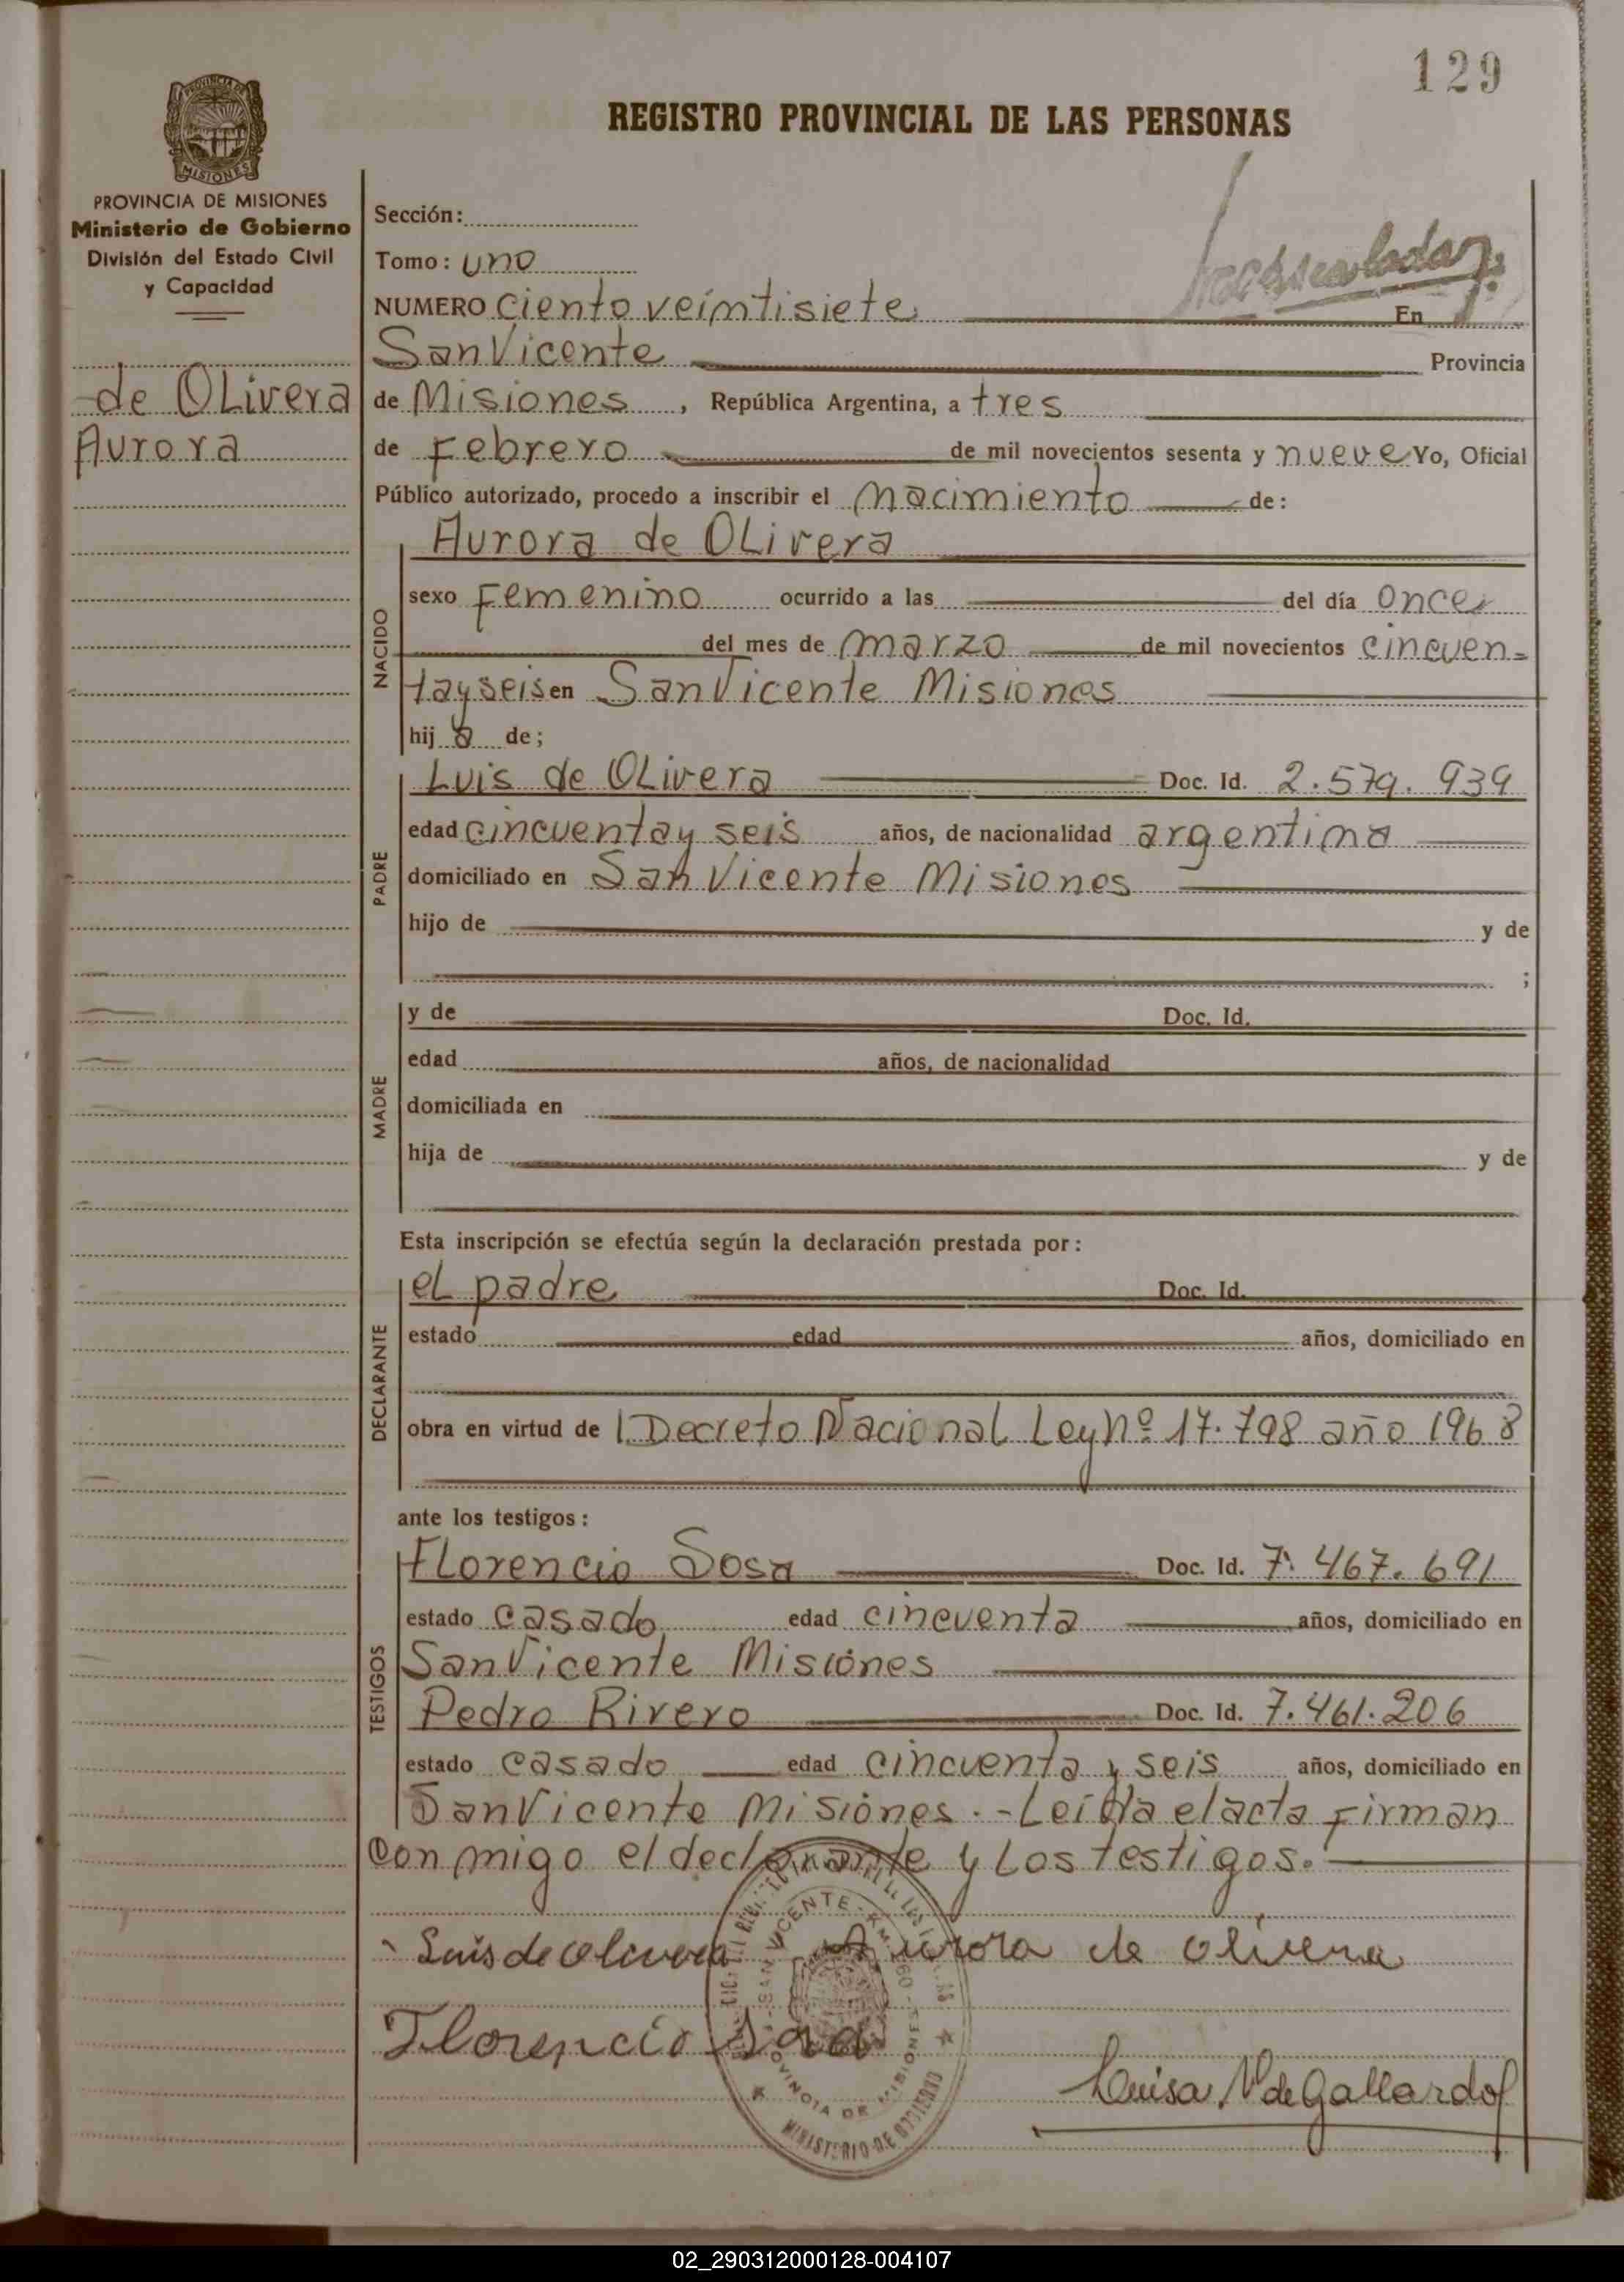 129
REGISTRO PROVINCIAL DE LAS PERSONAS
PROVINCIA DE MISIONES
Ministerio de Gobierno
División del Estado Civil
y Capacidad
de Olivera
Aurora
Sección:
Tomo: uno
NUMERO ciento veintisiete En
San Vicente Provincia
de Misiones, República Argentina, a tres
de Febrero de mil novecientos sesenta y nueve Yo, Oficial
Público autorizado, procedo a inscribir el nacimiento de:
NACIDO
Aurora de Olivera
sexo Femenino ocurrido a las del día once
del mes de marzo de mil novecientos cincuen=
tayseis en San Vicente Misiones
hij a de;
PADRE
Luis de Olivera Doc. Id. 2.579.939
edad cincuenta y seis años, de nacionalidad argentina
domiciliado en San Vicente Misiones
hijo de y de
;
MADRE
y de Doc. Id.
edad años, de nacionalidad
domiciliada en
hija de y de
Esta inscripción se efectúa según la declaración prestada por:
DECLARANTE
el padre Doc. Id.
estado edad años, domiciliado en
obra en virtud de Decreto Nacional Ley Nº 17.798 año 1968
ante los testigos:
TESTIGOS
Florencio Sosa Doc. Id. 7.467.691
estado casado edad cincuenta años, domiciliado en
San Vicente Misiones
Pedro Rivero Doc. Id. 7.461.206
estado casado edad cincuenta y seis años, domiciliado en
San Vicente Misiones.-Leída el acta firman
conmigo el declarante y los testigos.
Luis de olivera Aurora de olivera
Florencio Sosa
Luisa N de Gallardo
SAN VICENTE
PROVINCIA DE MISIONES
MINISTERIO DE GOBIERNO
02_290312000128-004107